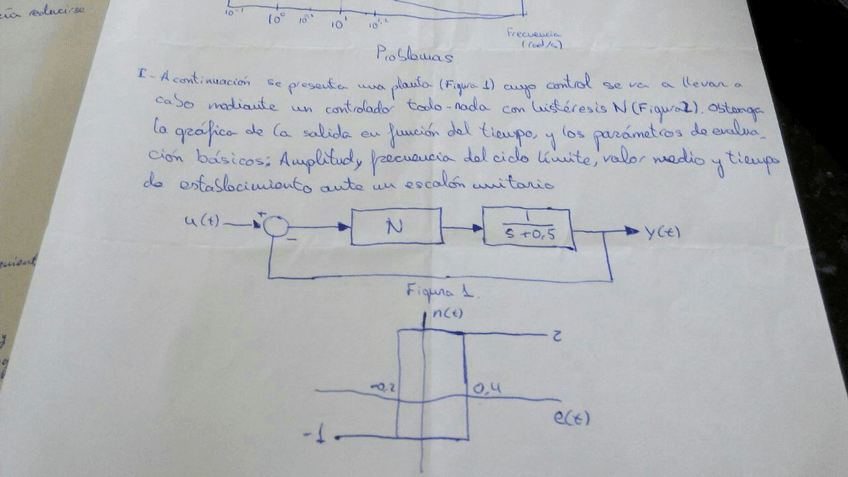 ía reducirse
10⁻¹ 10⁰ 10¹
Frecuencia
(rad/s)
Problemas
I- A continuación se presenta una planta (Figura 1) cuyo control se va a llevar a
cabo mediante un controlador todo-nada con histéresis N (Figura 2). Obtenga
la gráfica de la salida en función del tiempo, y los parámetros de evalua-
ción básicos: Amplitud, frecuencia del ciclo límite, valor medio y tiempo
de establecimiento ante un escalón unitario
u(t) + - N 1 y(t)
s + 0,5
Figura 1.
n(t)
2
-0,2 0,4
e(t)
-1